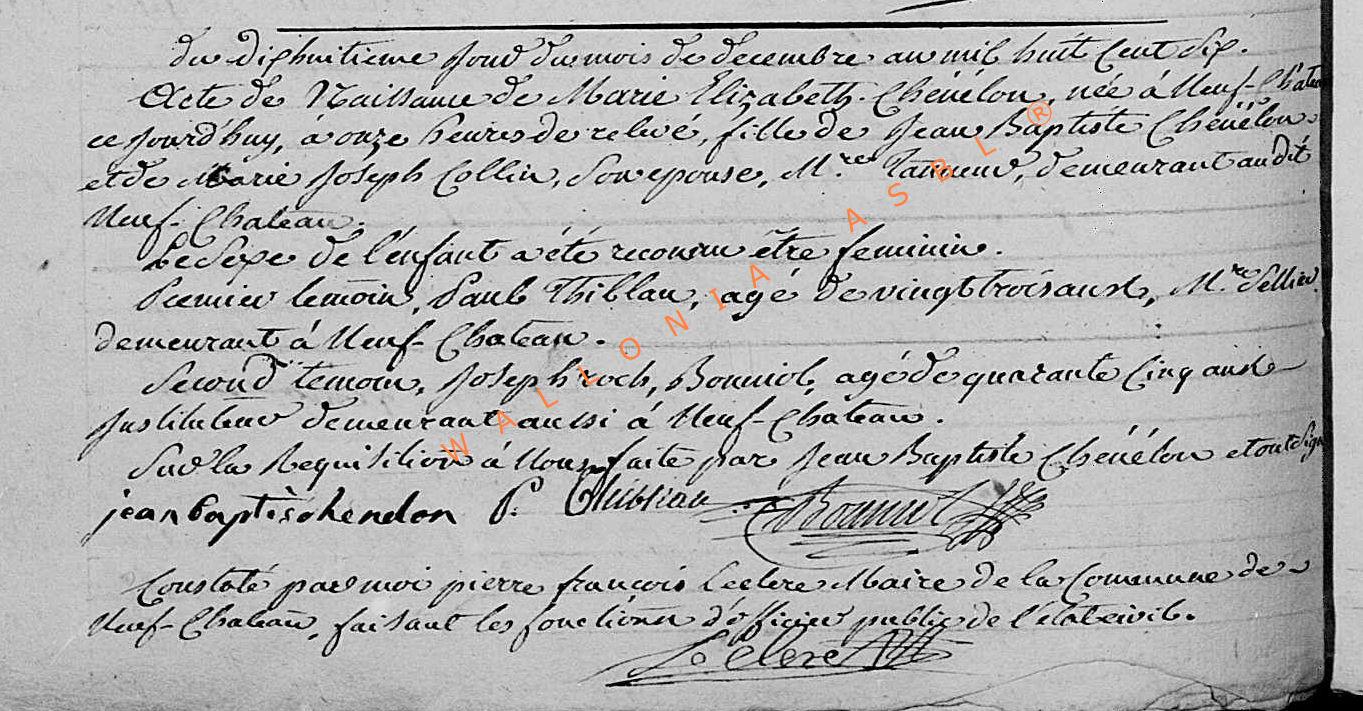 du dixhuitieme jour du mois de decembre an mil huit Cent Six.
Acte de Naissance de Marie Elizabeth Chénélon, née à Neuf-Château
ce jourd'huy, à onze heures de relevé, fille de Jean Baptiste Chénélon
et de Marie Joseph Collin, Son epouse, M.re Tanneur, demeurant au dit
Neuf-Chateau.
Le Sexe de l'enfant a été reconnu être feminin.
Premier temoin, Paul Thiblau, agé de vingt trois ans, M.re Sellier
demeurant à Neuf-Chateau.
Second temoin, Joseph roch, Bonniol, agé de quarante Cinq ans
Instituteur demeurant aussi à Neuf-Chateau.
Sur la Requisition à Nous faite par Jean Baptiste Chénélon et ont Signé
jean baptis chendon P. Thibliau Bonniol
Constaté par moi pierre françois Leclere Maire de la Commune de
Neuf-Chateau, faisant les fonctions d'officier public de l'état civil.
Leclere
WALLONIA ASBL ®